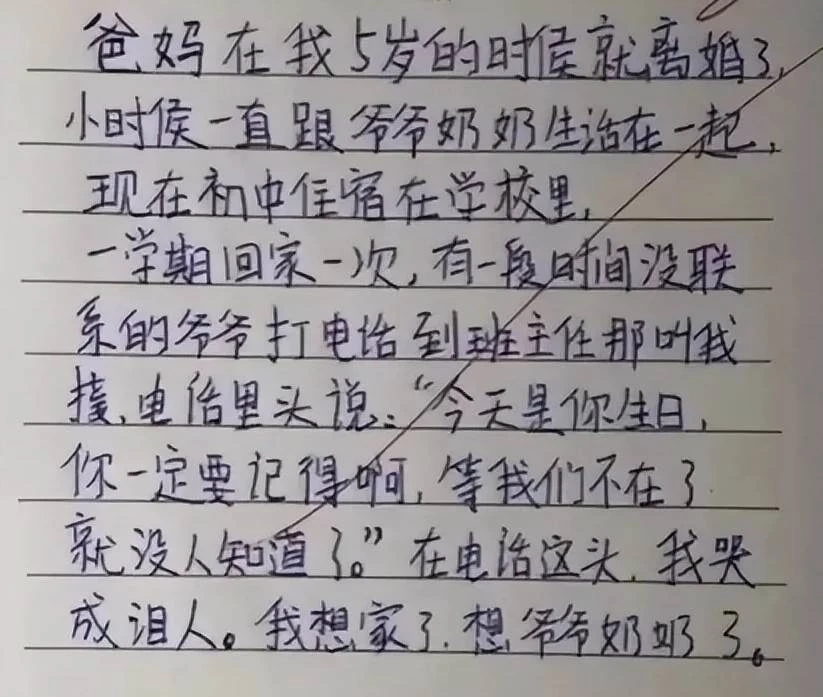 爸妈在我5岁的时候就离婚了,
小时侯一直跟爷爷奶奶生活在一起,
现在初中住宿在学校里,
一学期回家一次,有一段时间没联
系的爷爷打电话到班主任那叫我
接,电话里头说:“今天是你生日,
你一定要记得啊,等我们不在了
就没人知道了。”在电话这头,我哭
成泪人。我想家了.想爷爷奶奶了。